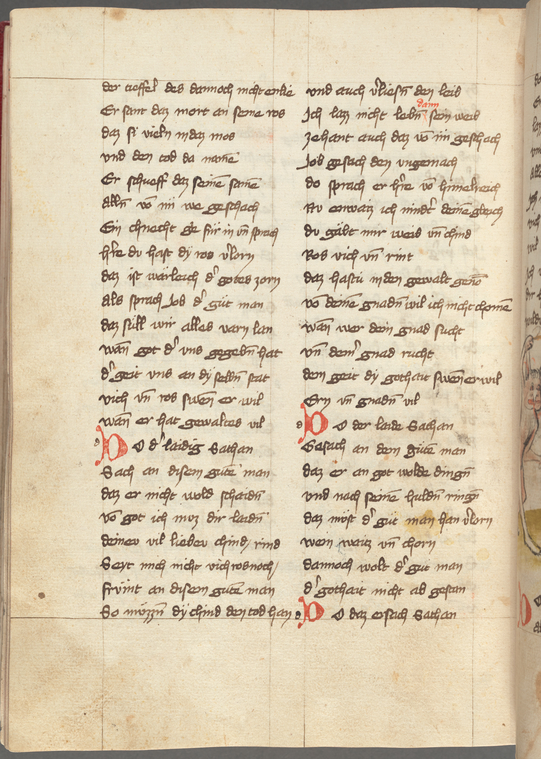 der tieffel des dannoch nicht enlie
Er sant daz mort an seine ros
daz si vieln in daz mos
und den tod da namē
Er schueff daz seinē samē
alln̄ vō im we geschach
Ein chnecht gie für in vn̄ sprach
h're du hast dy ros v'lorn
daz ist wärleich d' gotes zorn
als sprach Job d' güt man
daz süll wir alles varn lan
wan̄ got d' uns gegebn̄ hat
d' geit uns an dy selbn̄ stat
vich vn̄ ros swen̄ er wil
wan̄ er hat gewaltes vil
Do d' laidig Sathan
Sach an disem gutē man
daz er nicht wold schaidn̄
vō got ich muz dir laidn̄
deinew vil lieben chind/ rind
Seyt mich nicht vich ros noch/
frümt an disem gutē man
So müzzn̄ dy chind den tod han
und auch v'liesn̄ den leib
Ich laz nicht lebn̄ dann sein weib
zehant auch daz vō im geschach
Job gesach den ungemach
do sprach er h're vō himelreich
Nu erwaiz ich nindt' deinē gleich
du gäbt mir weib vn̄ chind
Ros vich vn̄ rint
daz hastu in den gewalt genō
vō deinē gnadn̄ wil ich nicht chomē
wan̄ wer dein gnad sucht
vn̄ dein' gnad rucht
dem geit dy gothait swen̄ er wil
Ern vn̄ gnadn̄ vil
Do der laide Sathan
Gesach an dem gutē man
daz er an got wolde dingn̄
und nach seinē huldn̄ ringn̄
daz müst d' güt man han v'lorn
wein waiz vn̄ chorn
dannoch wolt d' gut man
d' gothait nicht ab gestan
Do daz ersach Sathan